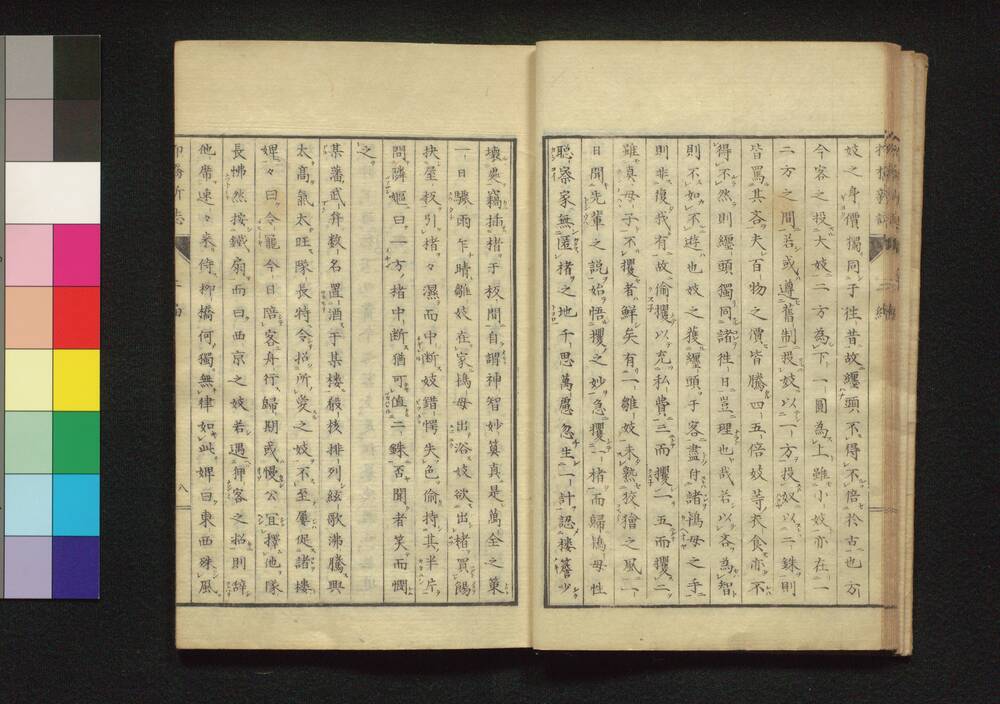 妓之身價獨同于往昔故纏頭不得不倍於古也方
今客之投大妓二方為下一圓為上雖小妓亦在一
二方之間若或遵舊制投妓以一方投奴以二銖則
皆罵其吝夫百物之價皆騰四五倍妓等衣食亦不
得不然則纏頭獨同諸往日豈理也哉若以吝為智
則不如不遊也妓之獲纏頭于客盡付諸鴇母之手
則非復我有故偷攫以充私費三而攫一五而攫二
雖真母子不攫者鮮矣有一雛妓未熟狡獪之風一
日聞先輩之說始悟攫之妙急攫一楮而歸鴇母性
聰察家無匿楮之地千思萬慮忽生一計認樓簷少
壞處竊插楮于板間自謂神智妙算真是萬全之策
一日驟雨乍晴雛妓在家鴇母出浴妓欲出楮買餳
抉屋板引楮々濕而中斷妓錯愕失色偷持其半片
問隣嫗曰一方楮中斷猶可值二銖否聞者笑而憫
之
某藩武弁數名置酒于某樓殽核排列絃歌沸騰興
太高氣太旺隊長特令招所愛之妓不至屢促諸樓
婢々曰令寵今日陪客舟行歸期或慢公冝擇他隊
長怫然按鐵扇而曰西京之妓若遇狎客之招則辭
他席速々來侍柳橋何獨無律如此婢曰東西殊風
柳橋新誌
二編
八